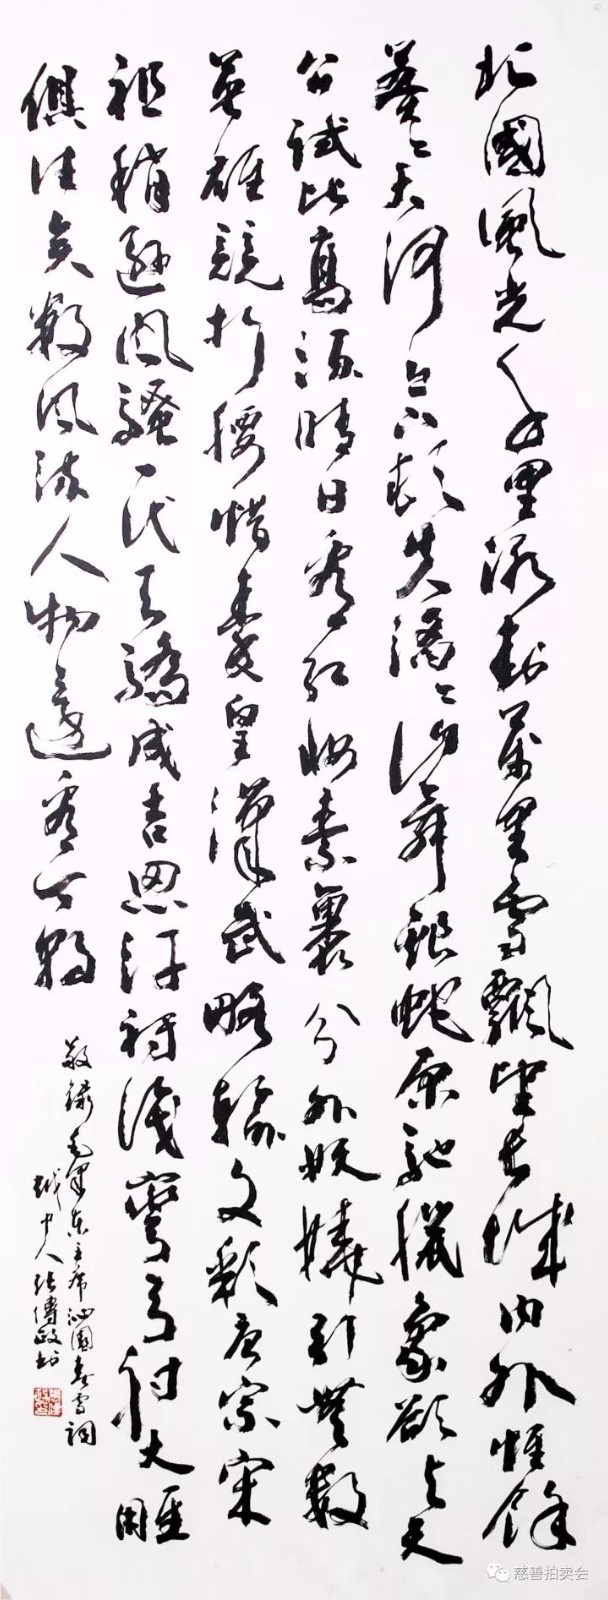 北國風光千里冰封萬里雪飄望長城內外惟餘
莽〻大河上下頓失滔〻山舞銀蛇原馳臘象欲與天
公試比高須晴日看紅妝素裹分外妖嬈引無數
英雄競折腰惜秦皇漢武略輸文彩唐宗宋
祖稍遜風騷一代天驕成吉思汗祗識彎弓射大雕
俱往矣數風流人物還看今朝
敬錄毛澤東主席沁園春雪詞
越中人張傳政書
慈善拍卖会